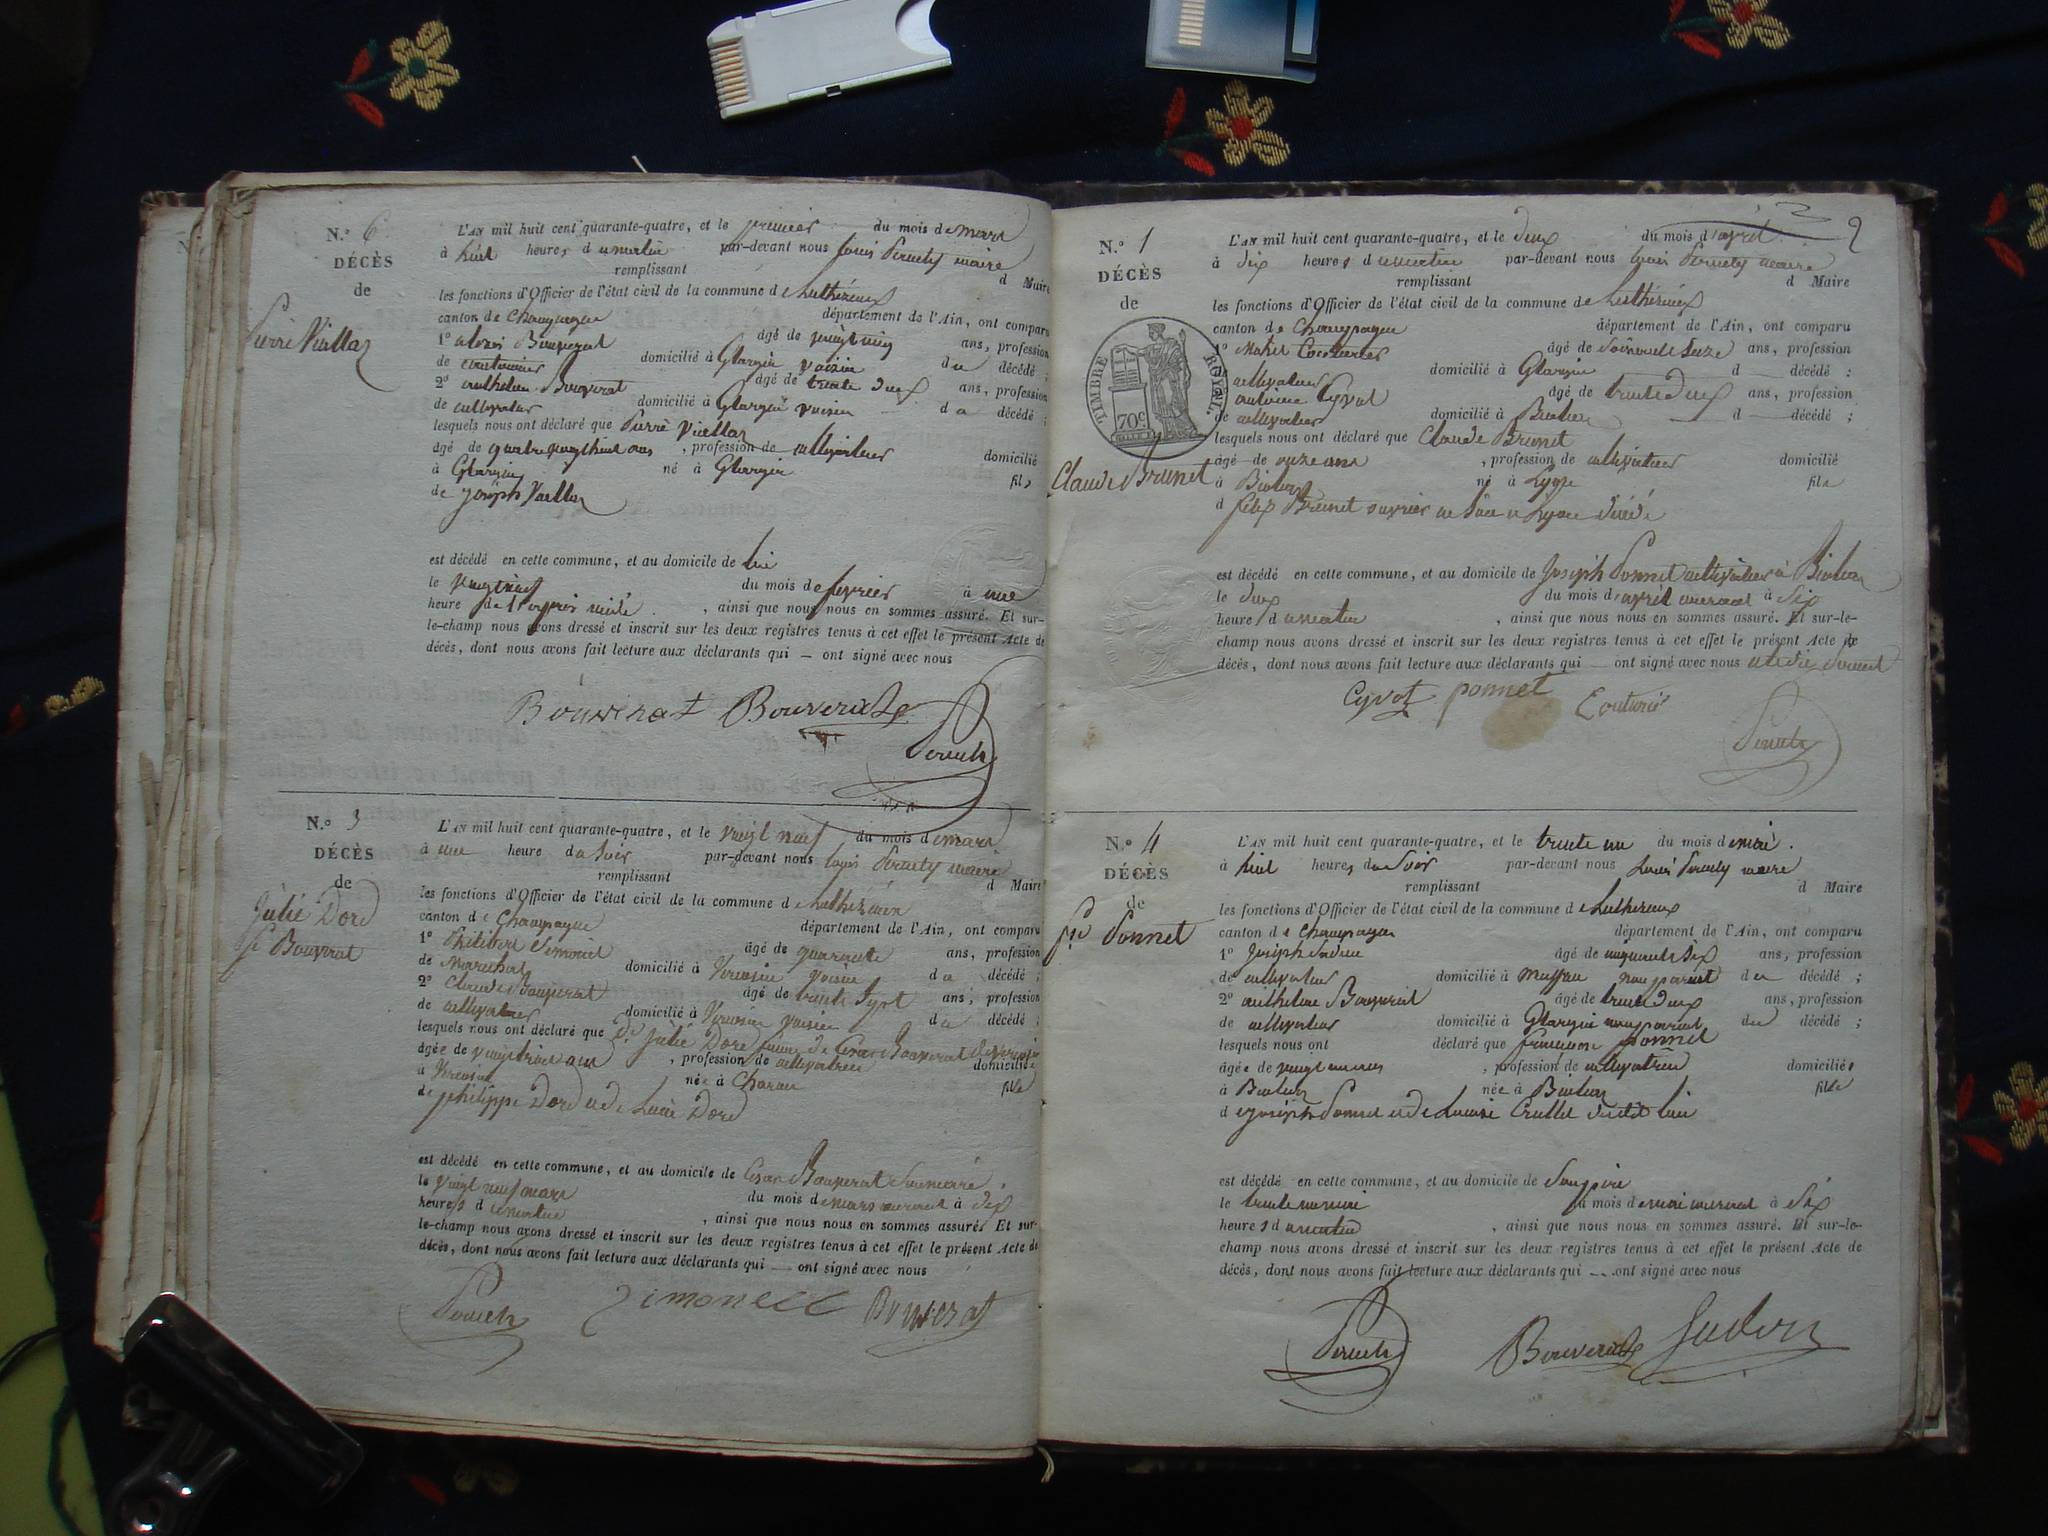 N.o 6
DÉCÈS
de
Pierre Viallaz
L'AN mil huit cent quarante-quatre, et le premier du mois de mars
à huit heures du matin par-devant nous Louis maire
remplissant d Maire
les fonctions d'Officier de l'état civil de la commune de Luthézieux
canton de Champagne département de l'Ain, ont comparu
1o Bouverat âgé de ans, profession
de domicilié à voisin du décédé ;
2o anthelme Bouverat âgé de trente deux ans, profession
de cultivateur domicilié à voisin du décédé ;
lesquels nous ont déclaré que Pierre Viallaz
âgé de quatre vingt huit ans, profession de cultivateur domicilié
à né à fils
de Joseph Viallaz
est décédé en cette commune, et au domicile de lui
le du mois de fevrier à une
heure de l'après midi, ainsi que nous nous en sommes assuré. Et sur-
le-champ nous avons dressé et inscrit sur les deux registres tenus à cet effet le présent Acte de
décès, dont nous avons fait lecture aux déclarants qui — ont signé avec nous
Bouverat Bouverat
N.o 3
DÉCÈS
de
Julie Dord
fe Bouverat
L'AN mil huit cent quarante-quatre, et le vingt neuf du mois de mars
à une heure du soir par-devant nous Louis maire
remplissant d Maire
les fonctions d'Officier de l'état civil de la commune de Luthézieux
canton de Champagne département de l'Ain, ont comparu
1o Philibert Simonet âgé de quarante ans, profession
de Marechal domicilié à voisin du décédé ;
2o Claude Bouverat âgé de trente sept ans, profession
de cultivateur domicilié à voisin du décédé ;
lesquels nous ont déclaré que Julie Dord femme de César Bouverat
âgée de ans, profession de cultivatrice domiciliée
à née à Charan fille
de philippe Dord et de Lucie Dord
est décédé en cette commune, et au domicile de César Bouverat son mari
le vingt neuf mars du mois de mars courant à dix
heures du matin, ainsi que nous nous en sommes assuré. Et sur-
le-champ nous avons dressé et inscrit sur les deux registres tenus à cet effet le présent Acte de
décès, dont nous avons fait lecture aux déclarants qui — ont signé avec nous
Simonet Bouverat
2
N.o 1
DÉCÈS
de
TIMBRE ROYAL.
70c
Claude Brunet
L'AN mil huit cent quarante-quatre, et le deux du mois d'avril
à dix heures du matin par-devant nous Louis maire
remplissant d Maire
les fonctions d'Officier de l'état civil de la commune de Luthézieux
canton de Champagne département de l'Ain, ont comparu
1o Couturier âgé de ans, profession
cultivateur domicilié à d — décédé ;
antoine Cyvot âgé de trente deux ans, profession
de cultivateur domicilié à d — décédé ;
lesquels nous ont déclaré que Claude Brunet
âgé de onze ans, profession de cultivateur domicilié
à né à Lyon fils
d félix Brunet ouvrier en soie à Lyon
est décédé en cette commune, et au domicile de Joseph Ponnet cultivateur à
le deux du mois d'avril courant à six
heures du matin, ainsi que nous nous en sommes assuré. Et sur-le-
champ nous avons dressé et inscrit sur les deux registres tenus à cet effet le présent Acte de
décès, dont nous avons fait lecture aux déclarants qui — ont signé avec nous
Cyvot ponnet Couturié
N.o 4
DÉCÈS
de
fse Ponnet
L'AN mil huit cent quarante-quatre, et le trente un du mois de mai.
à huit heures du soir par-devant nous Louis maire
remplissant d Maire
les fonctions d'Officier de l'état civil de la commune de Luthézieux
canton de Champagne département de l'Ain, ont comparu
1o Joseph âgé de cinquante six ans, profession
de cultivateur domicilié à non parent du décédé ;
2o anthelme Bouverat âgé de trente deux ans, profession
de cultivateur domicilié à non parent du décédé ;
lesquels nous ont déclaré que françoise ponnet
âgée de, profession de cultivatrice domiciliée
à née à fille
de Joseph Ponnet et de Louise
est décédé en cette commune, et au domicile de son père
le trente un mai du mois de mai courant à six
heures du matin, ainsi que nous nous en sommes assuré. Et sur-le-
champ nous avons dressé et inscrit sur les deux registres tenus à cet effet le présent Acte de
décès, dont nous avons fait lecture aux déclarants qui — ont signé avec nous
Bouverat